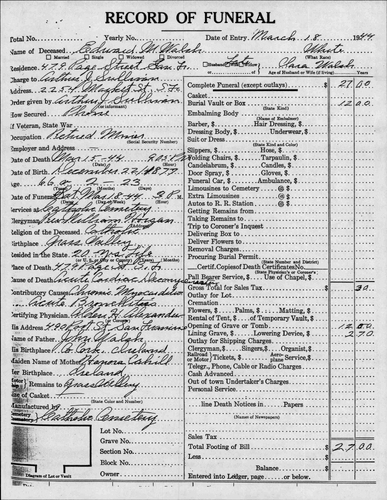 RECORD OF FUNERAL
Total No. Yearly No. Date of Entry March 18 1944
Name of Deceased Edward M. Walsh White
Married Single Widowed Divorced (What Race)
Residence 479 Page Street San Fr. Husband Late Clara Walsh
Age of Husband or Wife (if living)
Charge to Arthur J. Sullivan
Address 2254 Market St. S.F.
Order given by Arthur J. Sullivan
How Secured Phone
If Veteran, State War
Occupation Retired Miner
(Social Security Number)
Employer and Address
Date of Death Mar 15-44
Date of Birth December 22 1877
Age 66 2 23
Services at Catholic Cemetery
Clergyman
Religion of the Deceased Catholic
Birthplace Grass Valley
Resided in the State
Place of Death 479 Page St. S.F.
Cause of Death
Contributory Causes Chronic Myocarditis
Acute Bronchitis
Certifying Physician
His Address 490 Post St. San Francisco
Name of Father John Walsh
His Birthplace Co. Cork, Ireland
Maiden Name of Mother
Her Birthplace Ireland
Remains to Grass Valley
Size of Casket
(State Color and Number)
Manufactured by
Catholic Cemetery
Lot No.
Grave No.
Section No.
Block No.
Owner
Diagram of Lot or Vault
Complete Funeral (except outlays) $ 27 00
Casket
Burial Vault or Box 12 00
(State Kind)
Embalming Body
(State Kind)
Barber, $ Hair Dressing, $
Dressing Body, $ Underwear, $
Suit or Dress
Slippers, $ Hose, $
Folding Chairs, $ Tarpaulin, $
Candelabrum, $ Candles, $
Door Spray, $ Gloves, $
Funeral Car, $ Ambulance, $
Limousines to Cemetery @ $
Extra Limousines @ $
Autos to R. R. Station @ $
Getting Remains from
Taking Remains to
Trip to Coroner's Inquest
Delivering Box to
Deliver Flowers to
Removal Charges
Procuring Burial Permit
(State Number and District)
Certif. Copies of Death Certificate No.
Pall Bearer Service, $ Use of Chapel, $
Gross Total for Sales Tax $ 30
Outlay for Lot
Cremation
Flowers, $ Palms, $ Matting, $
Rental of Tent, $ of Temporary Vault, $
Opening of Grave or Tomb 12 00
Lining Grave, $ Lowering Device, $ 2 70
Outlay for Shipping Charges
Clergyman, $ Singers, $ Organist, $
Railroad or Motor Tickets, $ Aeroplane Service, $
Telegr., Phone, Cable or Radio Charges
Cash Advanced
Out of town Undertaker's Charges
Personal Service
line Death Notices in Papers
(Names of Newspapers)
Sales Tax $
Total Footing of Bill $ 27 00
Less
Balance
Entered into Ledger, page or below.